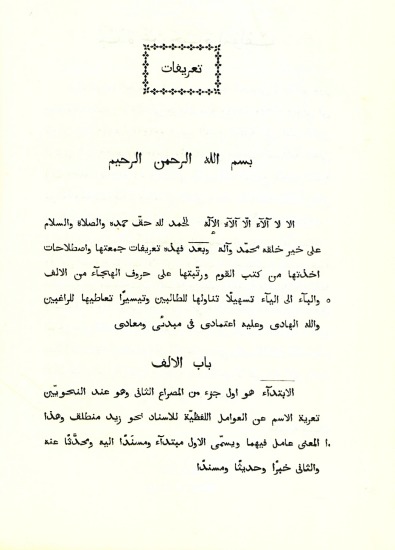 تعريفات
بسم الله الرحمن الرحيم
الا لا آلآء الّا آلآء الإله الحمد لله حقّ حمده والصلاة والسلام
على خير خلقه محمّد وآله وبعد فهذه تعريفات جمعتها واصطلاحات
اخذتها من كتب القوم ورتّبتها على حروف الهجآء من الالف
والبآء الى اليآء تسهيلًا تناولها للطالبين وتيسيرًا تعاطيها للراغبين ٥
والله الهادى وعليه اعتمادى فى مبدئى ومعادى
باب الالف
الابتدآء هو اول جزء من المصراع الثانى وهو عند النحويّين
تعرية الاسم عن العوامل اللفظيّة للاسناد نحو زيد منطلق وهذا
المعنى عامل فيهما ويسمّى الاول مبتدآء ومسنَدًا اليه ومحدَّثًا عنه ١٠
والثانى خبرًا وحديثًا ومسندًا